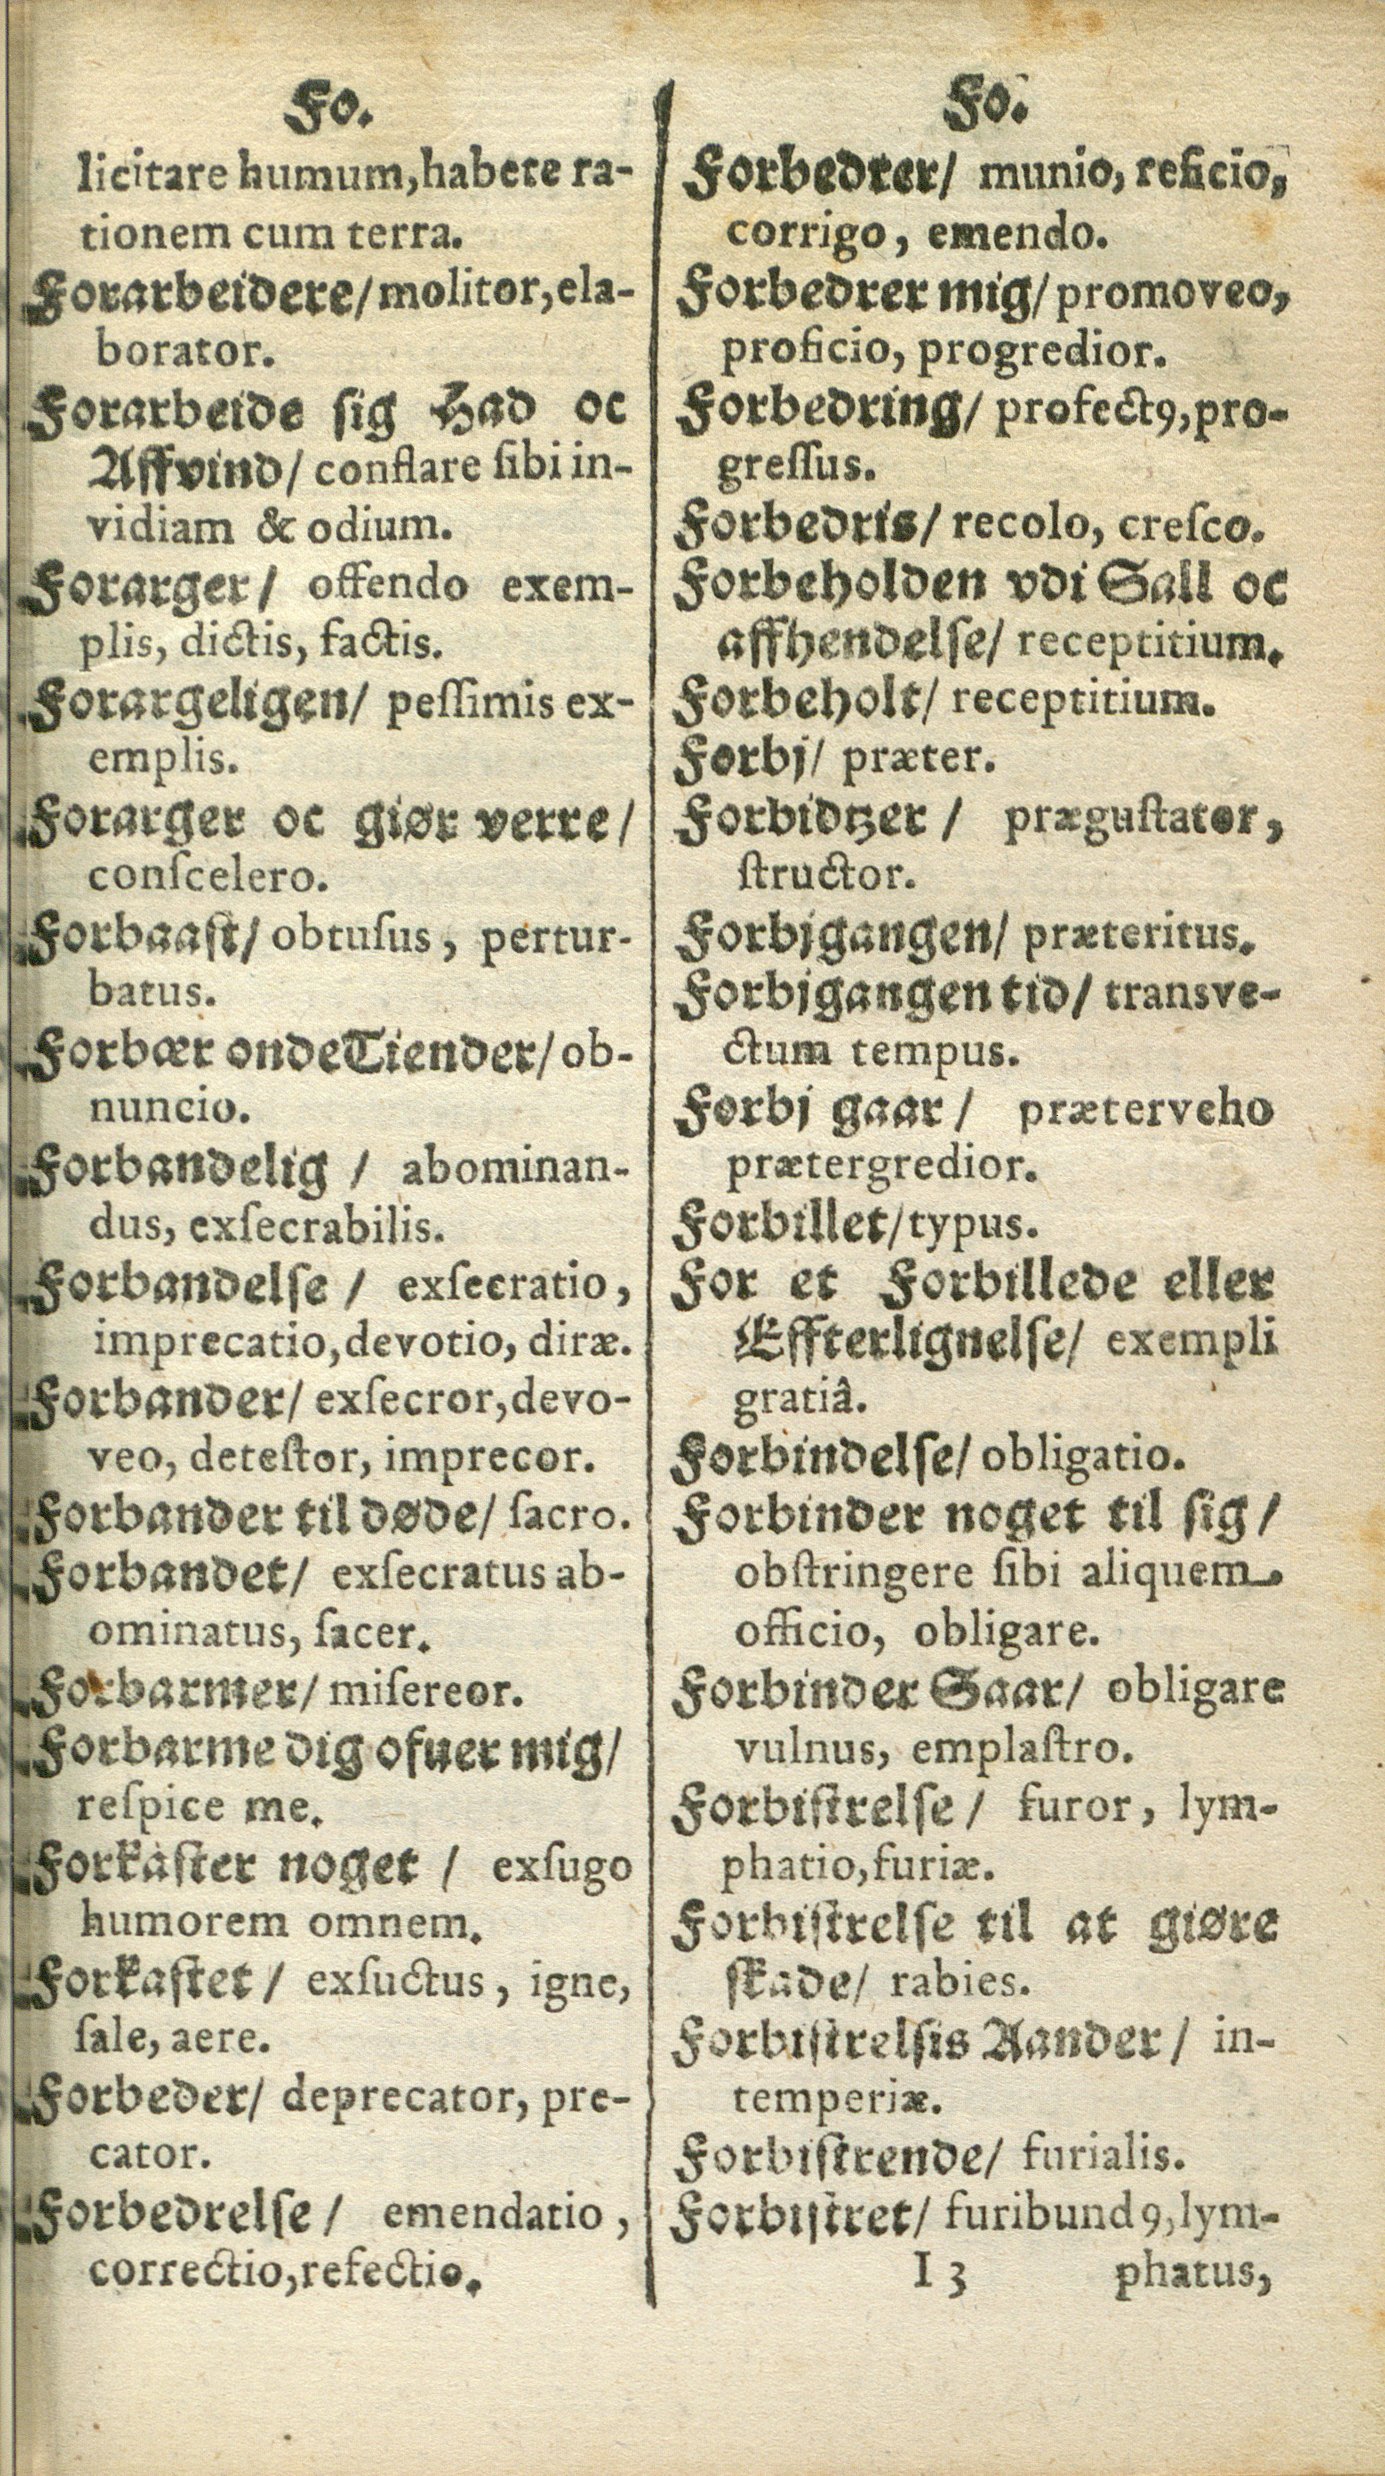 Fo.
licitare humum, habere ra-
tionem cum terra.
Forarbeidere/ molitor, ela-
borator.
Forarbeide sig Had oc
Affvind/ conflare ſibi in-
vidiam & odium.
Forarger/ offendo exem-
plis, dictis, factis.
Forargeligen/ peſſimis ex-
emplis.
Forarger oc giør verre/
conſcelero.
Forbaaſt/ obtuſus, pertur-
batus.
Forbær onde Tiender/ ob-
nuncio.
Forbandelig / abominan-
dus, exſecrabilis.
Forbandelſe / exſecratio,
imprecatio, devotio, diræ.
Forbander/ exſecror, devo-
veo, deteſtor, imprecor.
Forbander til døde/ ſacro.
Forbandet/ exſecratus ab-
ominatus, ſacer.
Forbarmer/ miſereor.
Forbarme dig ofuer mig/
reſpice me.
Forkaſter noget / exſugo
humorem omnem.
Forkaſtet/ exſuctus, igne,
ſale, aere.
Forbeder/ deprecator, pre-
cator.
Forbedrelſe/ emendatio,
correctio, refectio.
Fo.
Forbedrer/ munio, reficio,
corrigo, emendo.
Forbedrer mig/ promoveo,
proficio, progredior.
Forbedring/ profectꝰ, pro-
greſſus.
Forbedris/ recolo, creſco.
Forbeholden vdi Sall oc
affhendelſe/ receptitium.
Forbeholt/ receptitium.
Forbj/ præter.
Forbidtzer / præguſtator,
ſtructor.
Forbjgangen/ præteritus.
Forbjgangen tid/ transve-
ctum tempus.
Forbj gaar/ præterveho
prætergredior.
Forbillet/ typus.
For et Forbillede eller
Effterlignelſe/ exempli
gratiâ.
Forbindelſe/ obligatio.
Forbinder noget til ſig/
obſtringere ſibi aliquem
officio, obligare.
Forbinder Saar/ obligare
vulnus, emplaſtro.
Forbiſtrelſe/ furor, lym-
phatio, furiæ.
Forbiſtrelſe til at giøre
ſkade/ rabies.
Forbiſtrelſis Aander/ in-
temperiæ.
Forbiſtrende/ furialis.
Forbiſtret/ furibundꝰ, lym-
I 3 phatus,